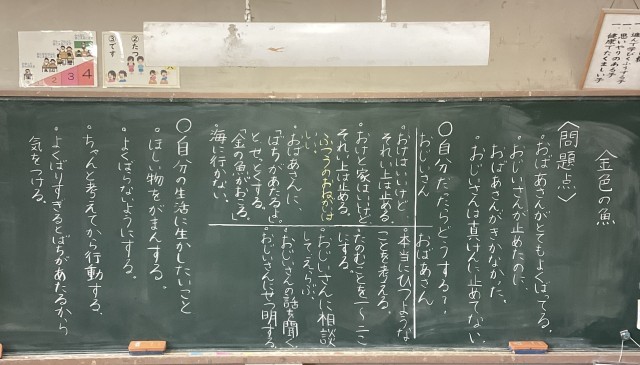 金色の魚
〈問題点〉
・おばあさんがとてもよくばってる。
・おじいさんが止めたのに、
おばあさんがきかなかった。
・おじいさんは真けんに止めてない。
○自分だったらどうする?
おじいさん
・おけはいいけど、
それい上は止める。
・おけと家はいいけど
それい上は止める。
ふつうのおねがいは
いい。
・おばあさんに、
「ばちがあたるよ。」
とせっとくする。
「金の魚がおこる。」
・海に行かない。
おばあさん
・本当にひつような
ことを考える。
・たのむことを一〜二こ
にする。
・おじいさんに相談
してえらぶ。
・おじいさんの話を聞く。
・おじいさんにせつ明する。
○自分の生活に生かしたいこと
・ほしい物をがまんする。
・よくばらないようにする。
・ちゃんと考えてから行動する。
・よくばりすぎるとばちがあたるから
気をつける。
③です
②たつ
2 3 4
進んで学びくふうする子
思いやりのある子
健康でたくましい子